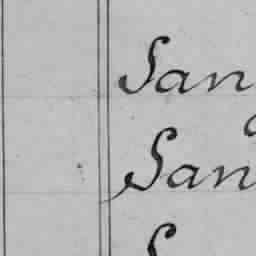 San
San
S